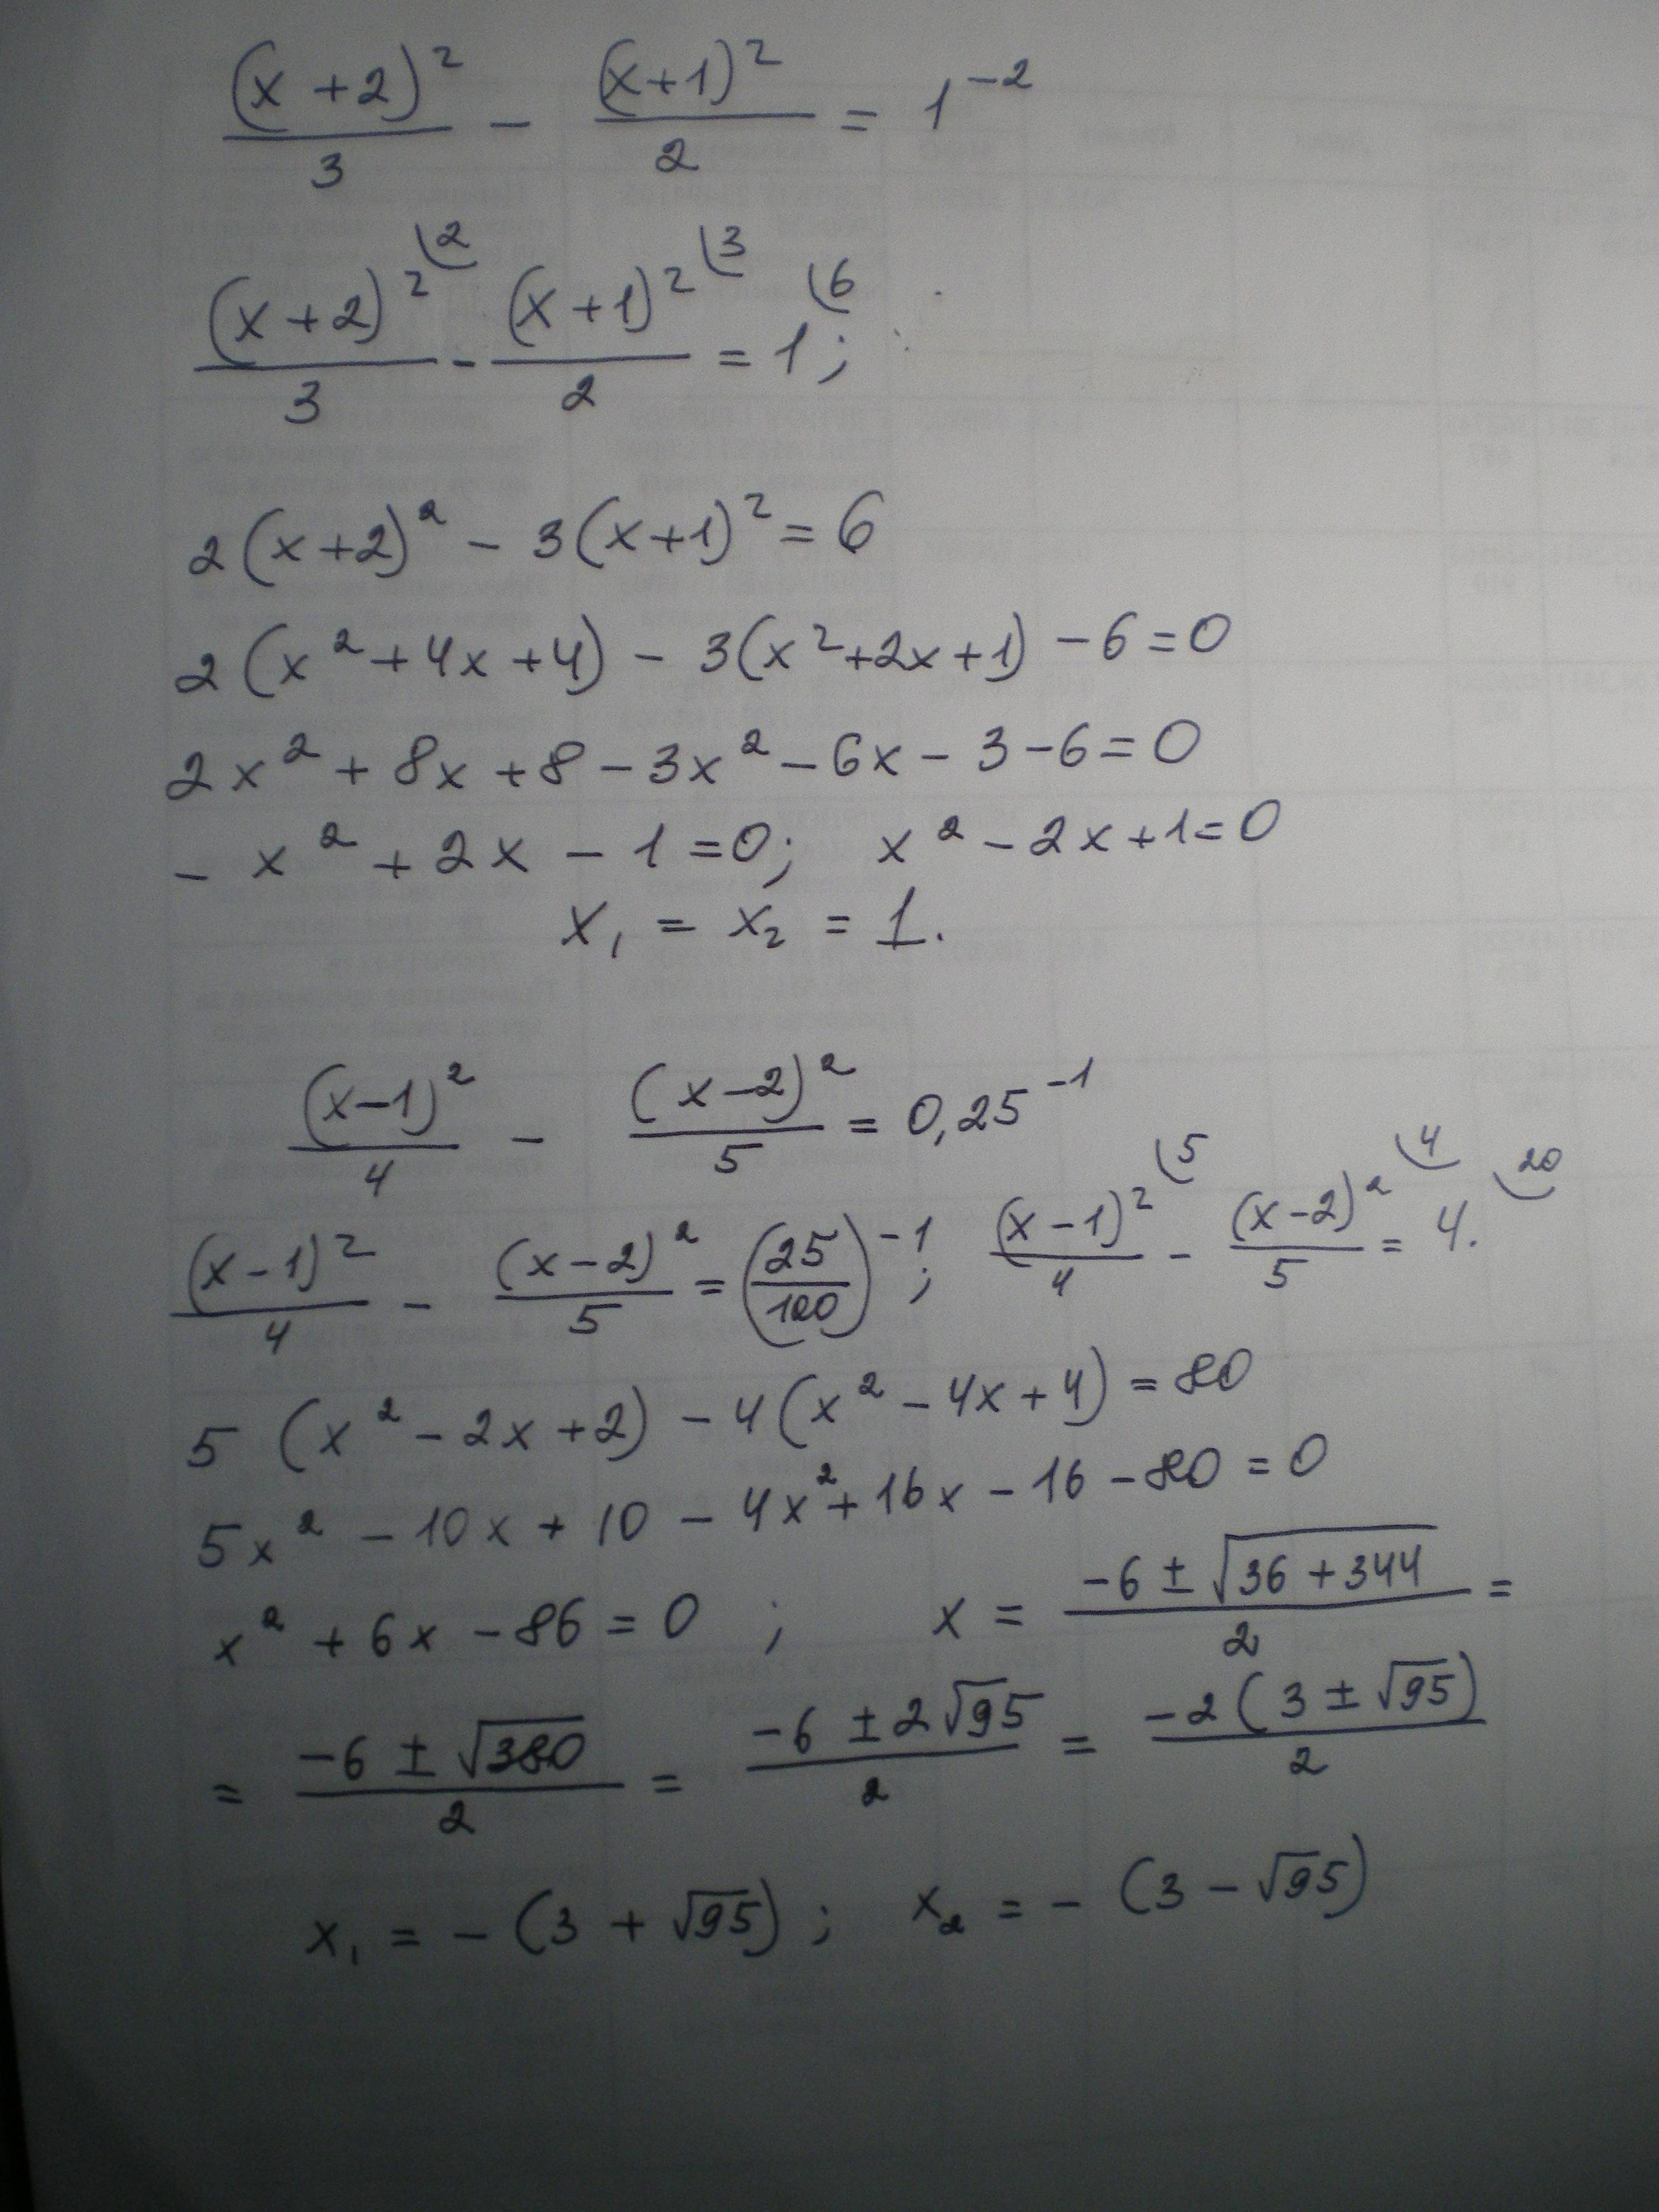 (x+2)²/3 - (x+1)²/2 = 1⁻²
(x+2)²⁽²/3 - (x+1)²⁽³/2 = 1⁽⁶;
2(x+2)² - 3(x+1)² = 6
2(x²+4x+4) - 3(x²+2x+1) - 6 = 0
2x² + 8x + 8 - 3x² - 6x - 3 - 6 = 0
- x² + 2x - 1 = 0; x² - 2x + 1 = 0
x₁ = x₂ = 1.
(x-1)²/4 - (x-2)²/5 = 0,25⁻¹
(x-1)²/4 - (x-2)²/5 = (25/100)⁻¹; (x-1)²⁽⁵/4 - (x-2)²⁽⁴/5 = 4.⁽²⁰
5(x² - 2x + 2) - 4(x² - 4x + 4) = 80
5x² - 10x + 10 - 4x² + 16x - 16 - 80 = 0
x² + 6x - 86 = 0 ; x = (-6 ± √(36+344))/2 =
= (-6 ± √380)/2 = (-6 ± 2√95)/2 = -2(3 ± √95)/2
x₁ = -(3 + √95); x₂ = -(3 - √95)